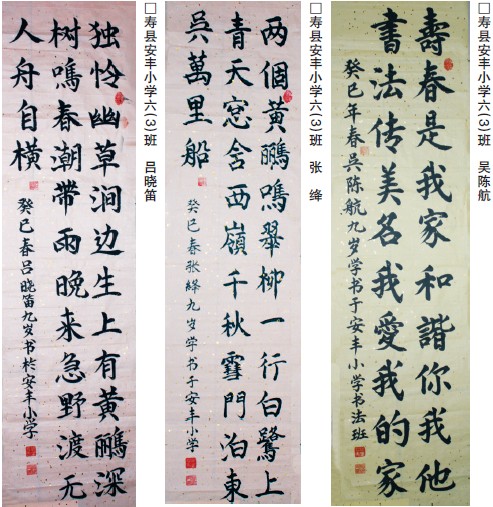 □寿县安丰小学六(3)班 吴陈航
壽春是我家和諧你我他
書法传美名我愛我的家
癸巳年春吴陈航九岁学书于安丰小学书法班
□寿县安丰小学六(3)班 张 绛
两個黄鸝鳴翠柳一行白鷺上
青天窓含西嶺千秋雪門泊東
吴萬里船
癸巳春张絳九岁学书于安丰小学
□寿县安丰小学六(3)班 吕晓笛
独怜幽草涧边生上有黄鸝深
树鳴春潮帶雨晚来急野渡无
人舟自横
癸巳春吕晓笛九岁书於安丰小学